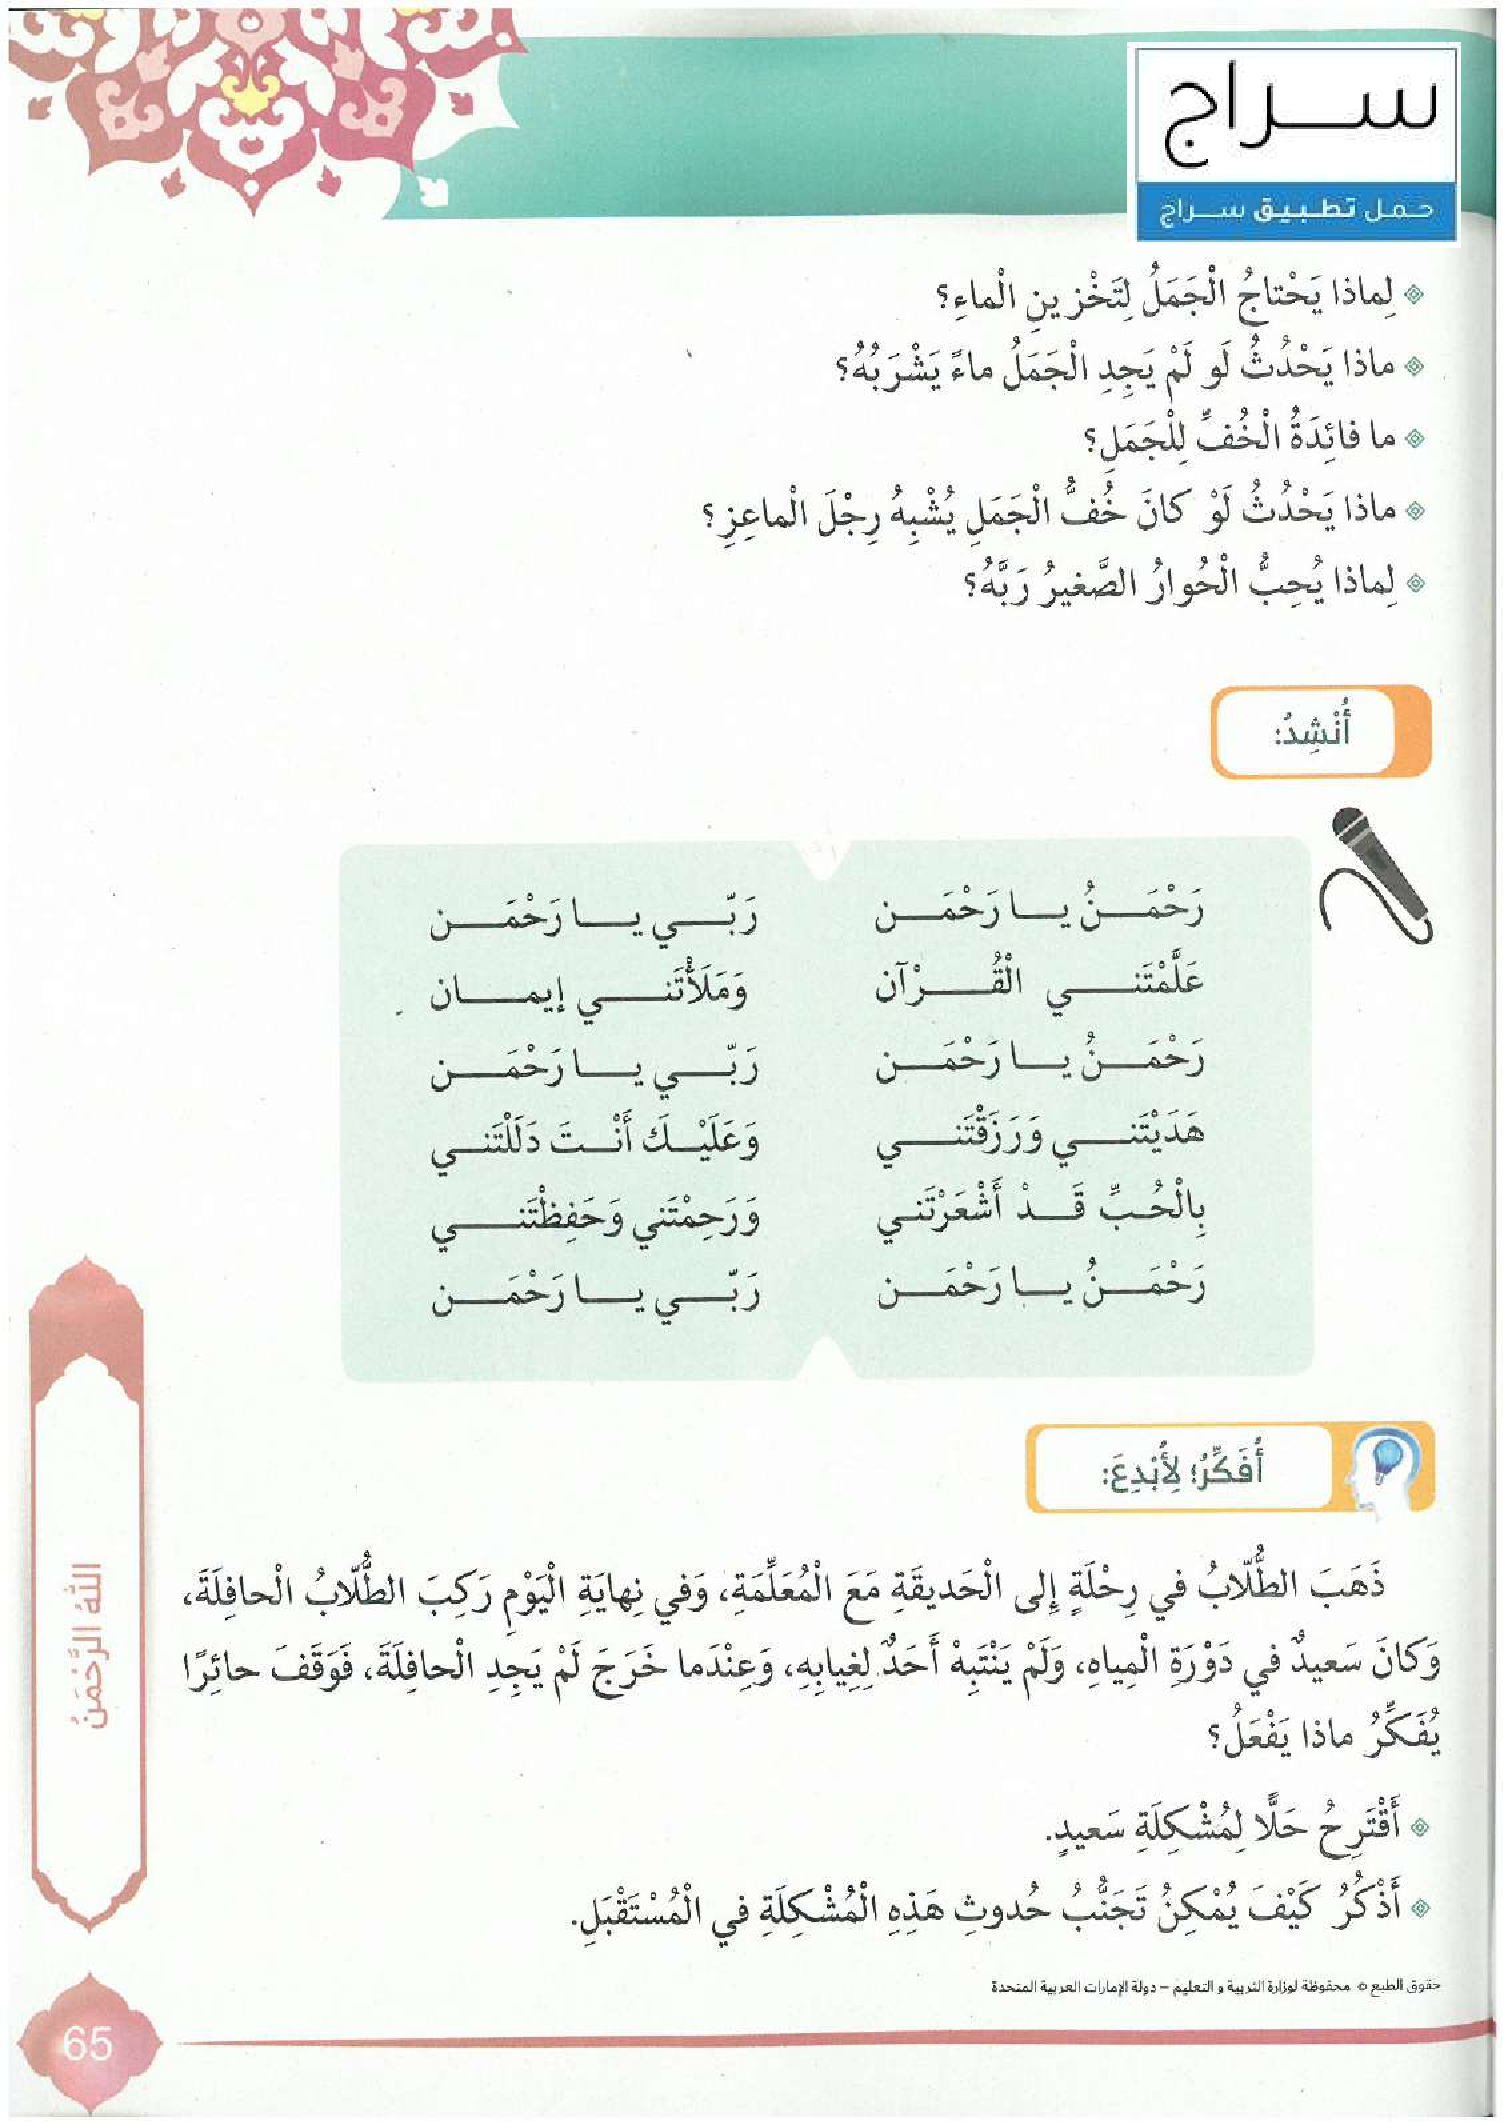 سراج
حمل تطبيق سراج
لِماذا يَحْتاجُ الْجَمَلُ لِتَخْزينِ الْماءِ؟
ماذا يَحْدُثُ لَو لَمْ يَجِدِ الْجَمَلُ ماءً يَشْرَبُهُ؟
ما فائِدَةُ الْخُفِّ لِلْجَمَلِ؟
ماذا يَحْدُثُ لَوْ كانَ خُفُّ الْجَمَلِ يُشْبِهُ رِجْلَ الْماعِزِ؟
لِماذا يُحِبُّ الْحُوارُ الصَّغيرُ رَبَّهُ؟
أُنْشِدُ:
رَحْمَـــنُ يـــا رَحْمَـــن رَبّـــي يـــا رَحْمَـــن
عَلَّمْتَنـــي الْقُـــرْآن وَمَلَأْتَنـــي إيمـــان
رَحْمَـــنُ يـــا رَحْمَـــن رَبّـــي يـــا رَحْمَـــن
هَدَيْتَنـــي وَرَزَقْتَنـــي وَعَلَيْـــكَ أَنْـــتَ دَلَلْتَنـــي
بِالْحُـــبِّ قَـــدْ أَشْعَرْتَني وَرَحِمْتَني وَحَفِظْتَنـــي
رَحْمَـــنُ يـــا رَحْمَـــن رَبّـــي يـــا رَحْمَـــن
أُفَكِّرُ؛ لِأُبْدِعَ:
ذَهَبَ الطُّلّابُ في رِحْلَةٍ إِلى الْحَديقَةِ مَعَ الْمُعَلِّمَةِ، وَفي نِهايَةِ الْيَوْمِ رَكِبَ الطُّلّابُ الْحافِلَةَ،
وَكانَ سَعيدٌ في دَوْرَةِ الْمِياهِ، وَلَمْ يَنْتَبِهْ أَحَدٌ لِغِيابِهِ، وَعِنْدَما خَرَجَ لَمْ يَجِدِ الْحافِلَةَ، فَوَقَفَ حائِرًا
يُفَكِّرُ ماذا يَفْعَلُ؟
أَقْتَرِحُ حَلًّا لِمُشْكِلَةِ سَعيدٍ.
أَذْكُرُ كَيْفَ يُمْكِنُ تَجَنُّبُ حُدوثِ هَذِهِ الْمُشْكِلَةِ في الْمُسْتَقْبَلِ.
حقوق الطبع © محفوظة لوزارة التربية و التعليم – دولة الإمارات العربية المتحدة
اللهُ الرَّحْمَنُ
65